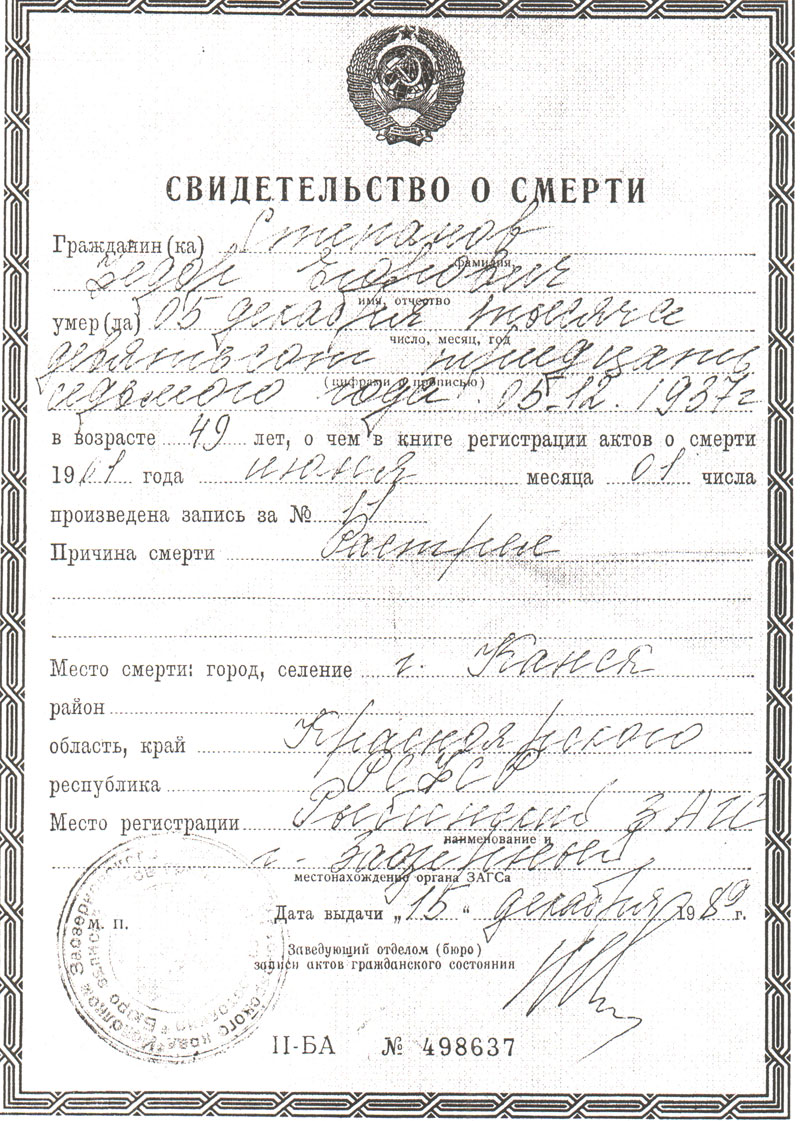 СВИДЕТЕЛЬСТВО О СМЕРТИ
Гражданин (ка) Степанов
фамилия,
Федор
имя, отчество
умер(ла) 05 декабря тысяча
число, месяц, год
девятьсот тридцать
(цифрами и прописью)
седьмого года 05.12.1937г
в возрасте 49 лет, о чем в книге регистрации актов о смерти
19 года июня месяца 01 числа
произведена запись за № 11
Причина смерти Расстрел
Место смерти: город, селение г. Канск
район
область, край Красноярского
республика РСФСР
Место регистрации Рыбинский ЗАГС
наименование и
г. Заозерный
местонахождение органа ЗАГСа
М. П.
Дата выдачи „15" декабря 1989 г.
Заведующий отделом (бюро)
записи актов гражданского состояния
II-БА № 498637